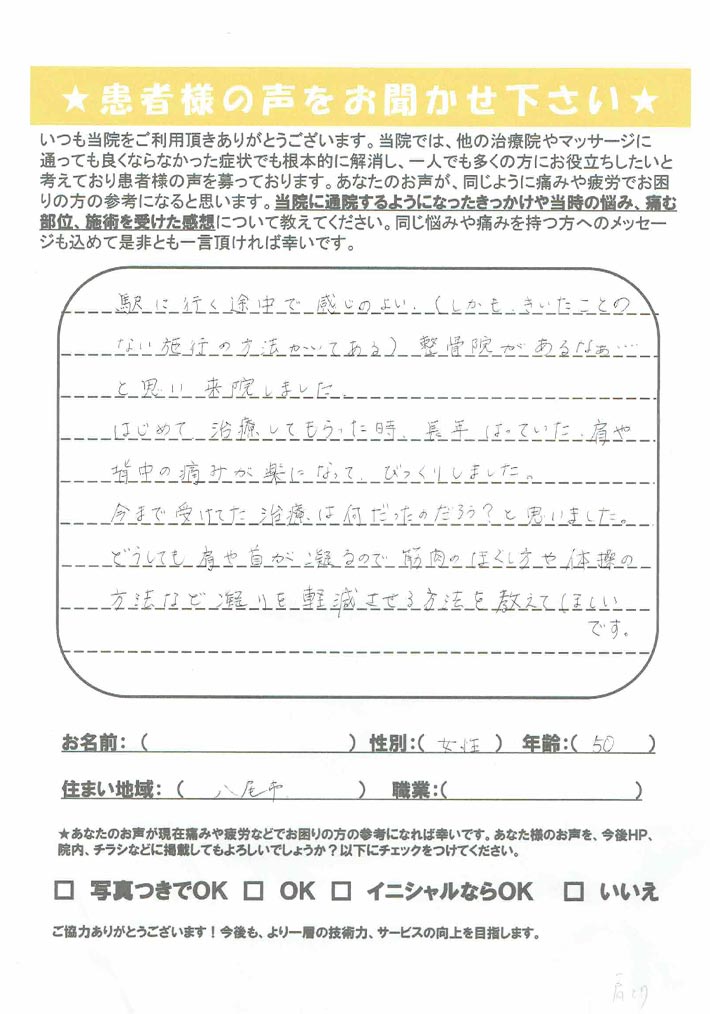 ★患者様の声をお聞かせ下さい★
いつも当院をご利用頂きありがとうございます。当院では、他の治療院やマッサージに
通っても良くならなかった症状でも根本的に解消し、一人でも多くの方にお役立ちしたいと
考えており患者様の声を募っております。あなたのお声が、同じように痛みや疲労でお困
りの方の参考になると思います。当院に通院するようになったきっかけや当時の悩み、痛む
部位、施術を受けた感想について教えてください。同じ悩みや痛みを持つ方へのメッセー
ジも込めて是非とも一言頂ければ幸いです。
駅に行く途中で感じのよい、(しかも、きいたことの
ない施行の方法かいてある)整骨院があるなぁ……
と思い来院しました。
はじめて、治療してもらった時、長年はっていた、肩や
背中の痛みが楽になって、びっくりしました。
今まで受けてた治療は何だったのだろう?と思いました。
どうしても肩や首が凝るので筋肉のほぐし方や体操の
方法など凝りを軽減させる方法を教えてほしい
です。
お名前:( ) 性別:(女性) 年齢:(50)
住まい地域:(八尾市) 職業:( )
★あなたのお声が現在痛みや疲労などでお困りの方の参考になれば幸いです。あなた様のお声を、今後HP、
院内、チラシなどに掲載してもよろしいでしょうか?以下にチェックをつけてください。
□ 写真つきでOK □ OK □ イニシャルならOK □ いいえ
ご協力ありがとうございます!今後も、より一層の技術力、サービスの向上を目指します。